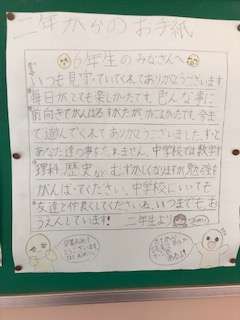 二年からのお手紙
6年生のみなさんへ
いつも見守っていてくれてありがとうございます
毎日がとても楽しかったです。色んな事に
前向きでがんばるすがたが
て遊んでくれてありがとうございました。ずっと
あなた達の事をわすれません。中学校では数学
理科歴史など、むずかしくなりますが勉強を
がんばってください。中学校にいっても
友達と仲良くしてくださいね。いつまでもお
うえんしています! 二年生より